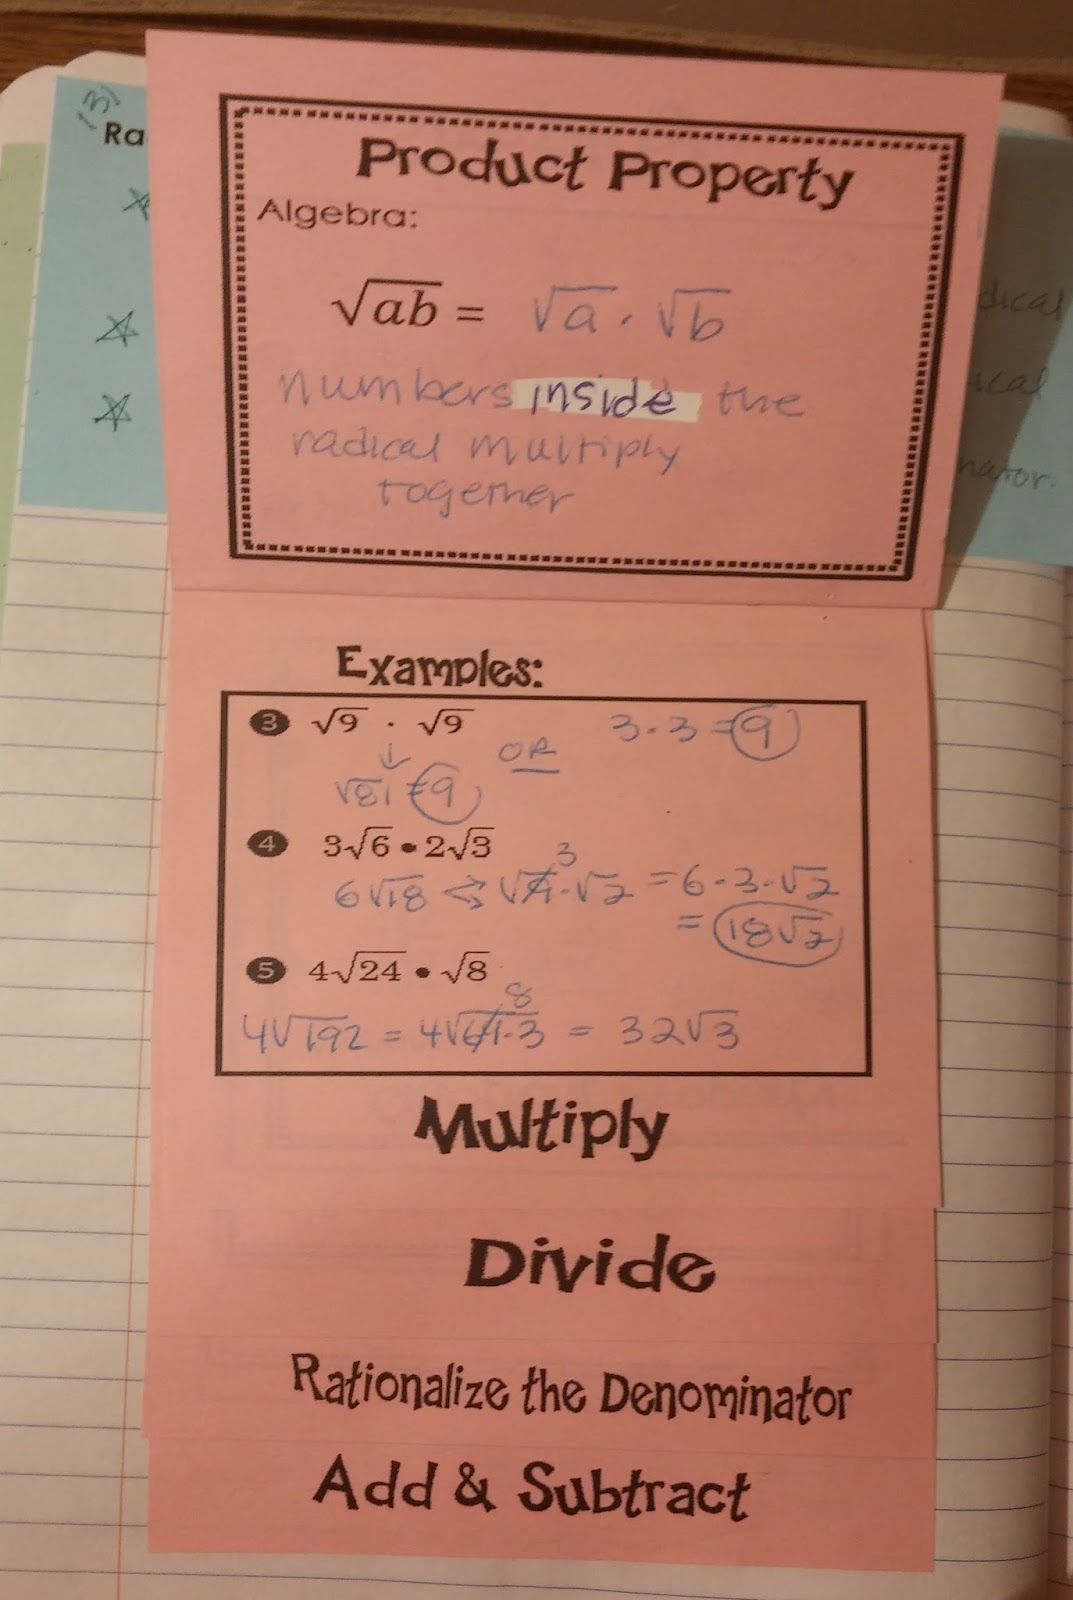 13)
Ra
dical
ical
nator.
Product Property
Algebra:
√ab = √a · √b
numbers inside the
radical multiply
together
Examples:
3 √9 · √9 3·3=9
↓ OR
√81=9
4 3√6 • 2√3
6√18 ⇔ √9·√2 3 =6·3·√2
= 18√2
5 4√24 • √8
4√192 = 4√64·3 8 = 32√3
Multiply
Divide
Rationalize the Denominator
Add & Subtract